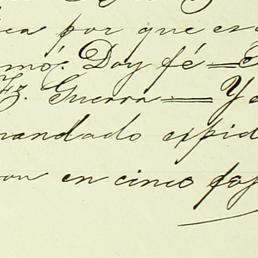 por que es
mó. Doy fé—
Fz. Guerra— Y
mandado espid
en cinco foj